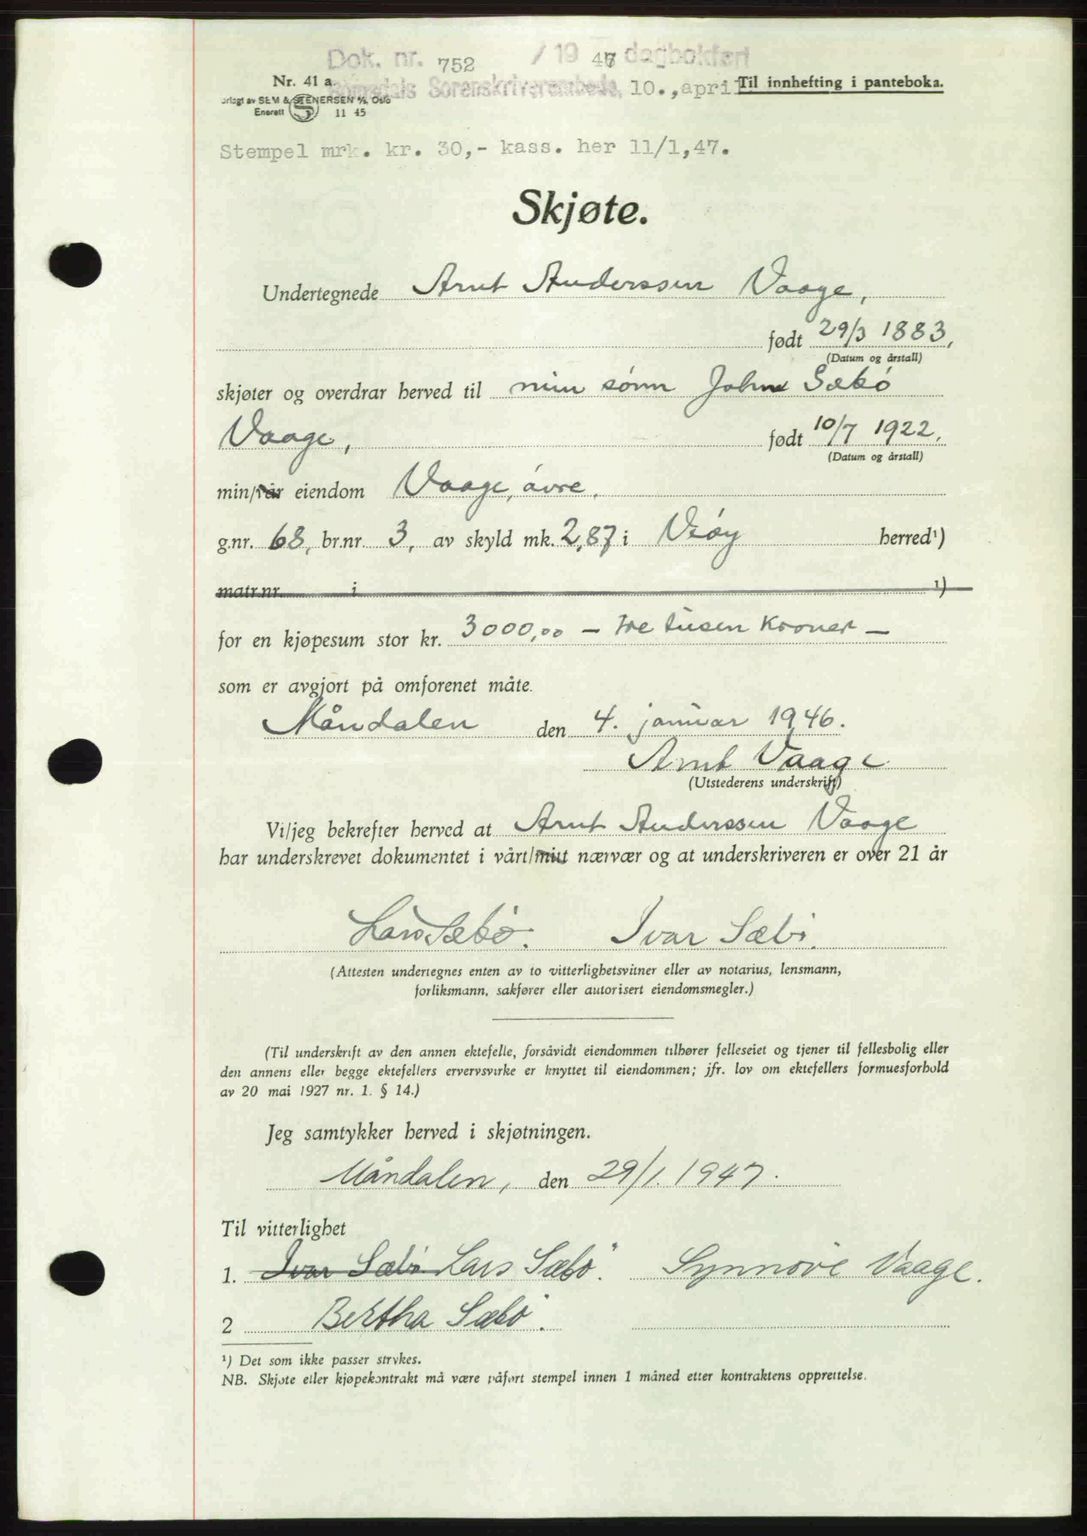 Dok. nr. 752 / 19 47 dagbokført
Romsdals Sorenskriverembede, 10., april
Nr. 41 a.
Til innhefting i panteboka.
SEM & STENERSEN A/S, Oslo
Enerett S 11 45
Stempel mrk. kr. 30,- kass. her 11/1,47.
Skjøte.
Undertegnede Arnt Anderssen Vaage,
født 29/3 1883,
(Datum og årstall)
skjøter og overdrar herved til min sønn John Sæbö
Vaage, født 10/7 1922.
(Datum og årstall)
min/vår eiendom Vaage, övre.
g.nr. 68, br.nr 3, av skyld mk. 2,87 i Veöy herred¹)
matr.nr. i ¹)
for en kjøpesum stor kr. 3000,00 – tre tusen kroner –
som er avgjort på omforenet måte.
Måndalen den 4. januar 1946.
Arnt Vaage
(Utstederens underskrift)
Vi/jeg bekrefter herved at Arnt Anderssen Vaage
har underskrevet dokumentet i vårt/mitt nærvær og at underskriveren er over 21 år
Lars Sæbö. Ivar Sæbö.
(Attesten undertegnes enten av to vitterlighetsvitner eller av notarius, lensmann,
forliksmann, sakfører eller autorisert eiendomsmegler.)
(Til underskrift av den annen ektefelle, forsåvidt eiendommen tilhører felleseiet og tjener til fellesbolig eller
den annens eller begge ektefellers ervervsvirke er knyttet til eiendommen; jfr. lov om ektefellers formuesforhold
av 20 mai 1927 nr. 1. § 14.)
Jeg samtykker herved i skjøtningen.
Måndalen, den 29/1. 1947.
Til vitterlighet
1. Ivar Sæbö Lars Sæbö. Synnöve Vaage.
2 Bertha Sæbö.
¹) Det som ikke passer strykes.
NB. Skjøte eller kjøpekontrakt må være påført stempel innen 1 måned etter kontraktens opprettelse.